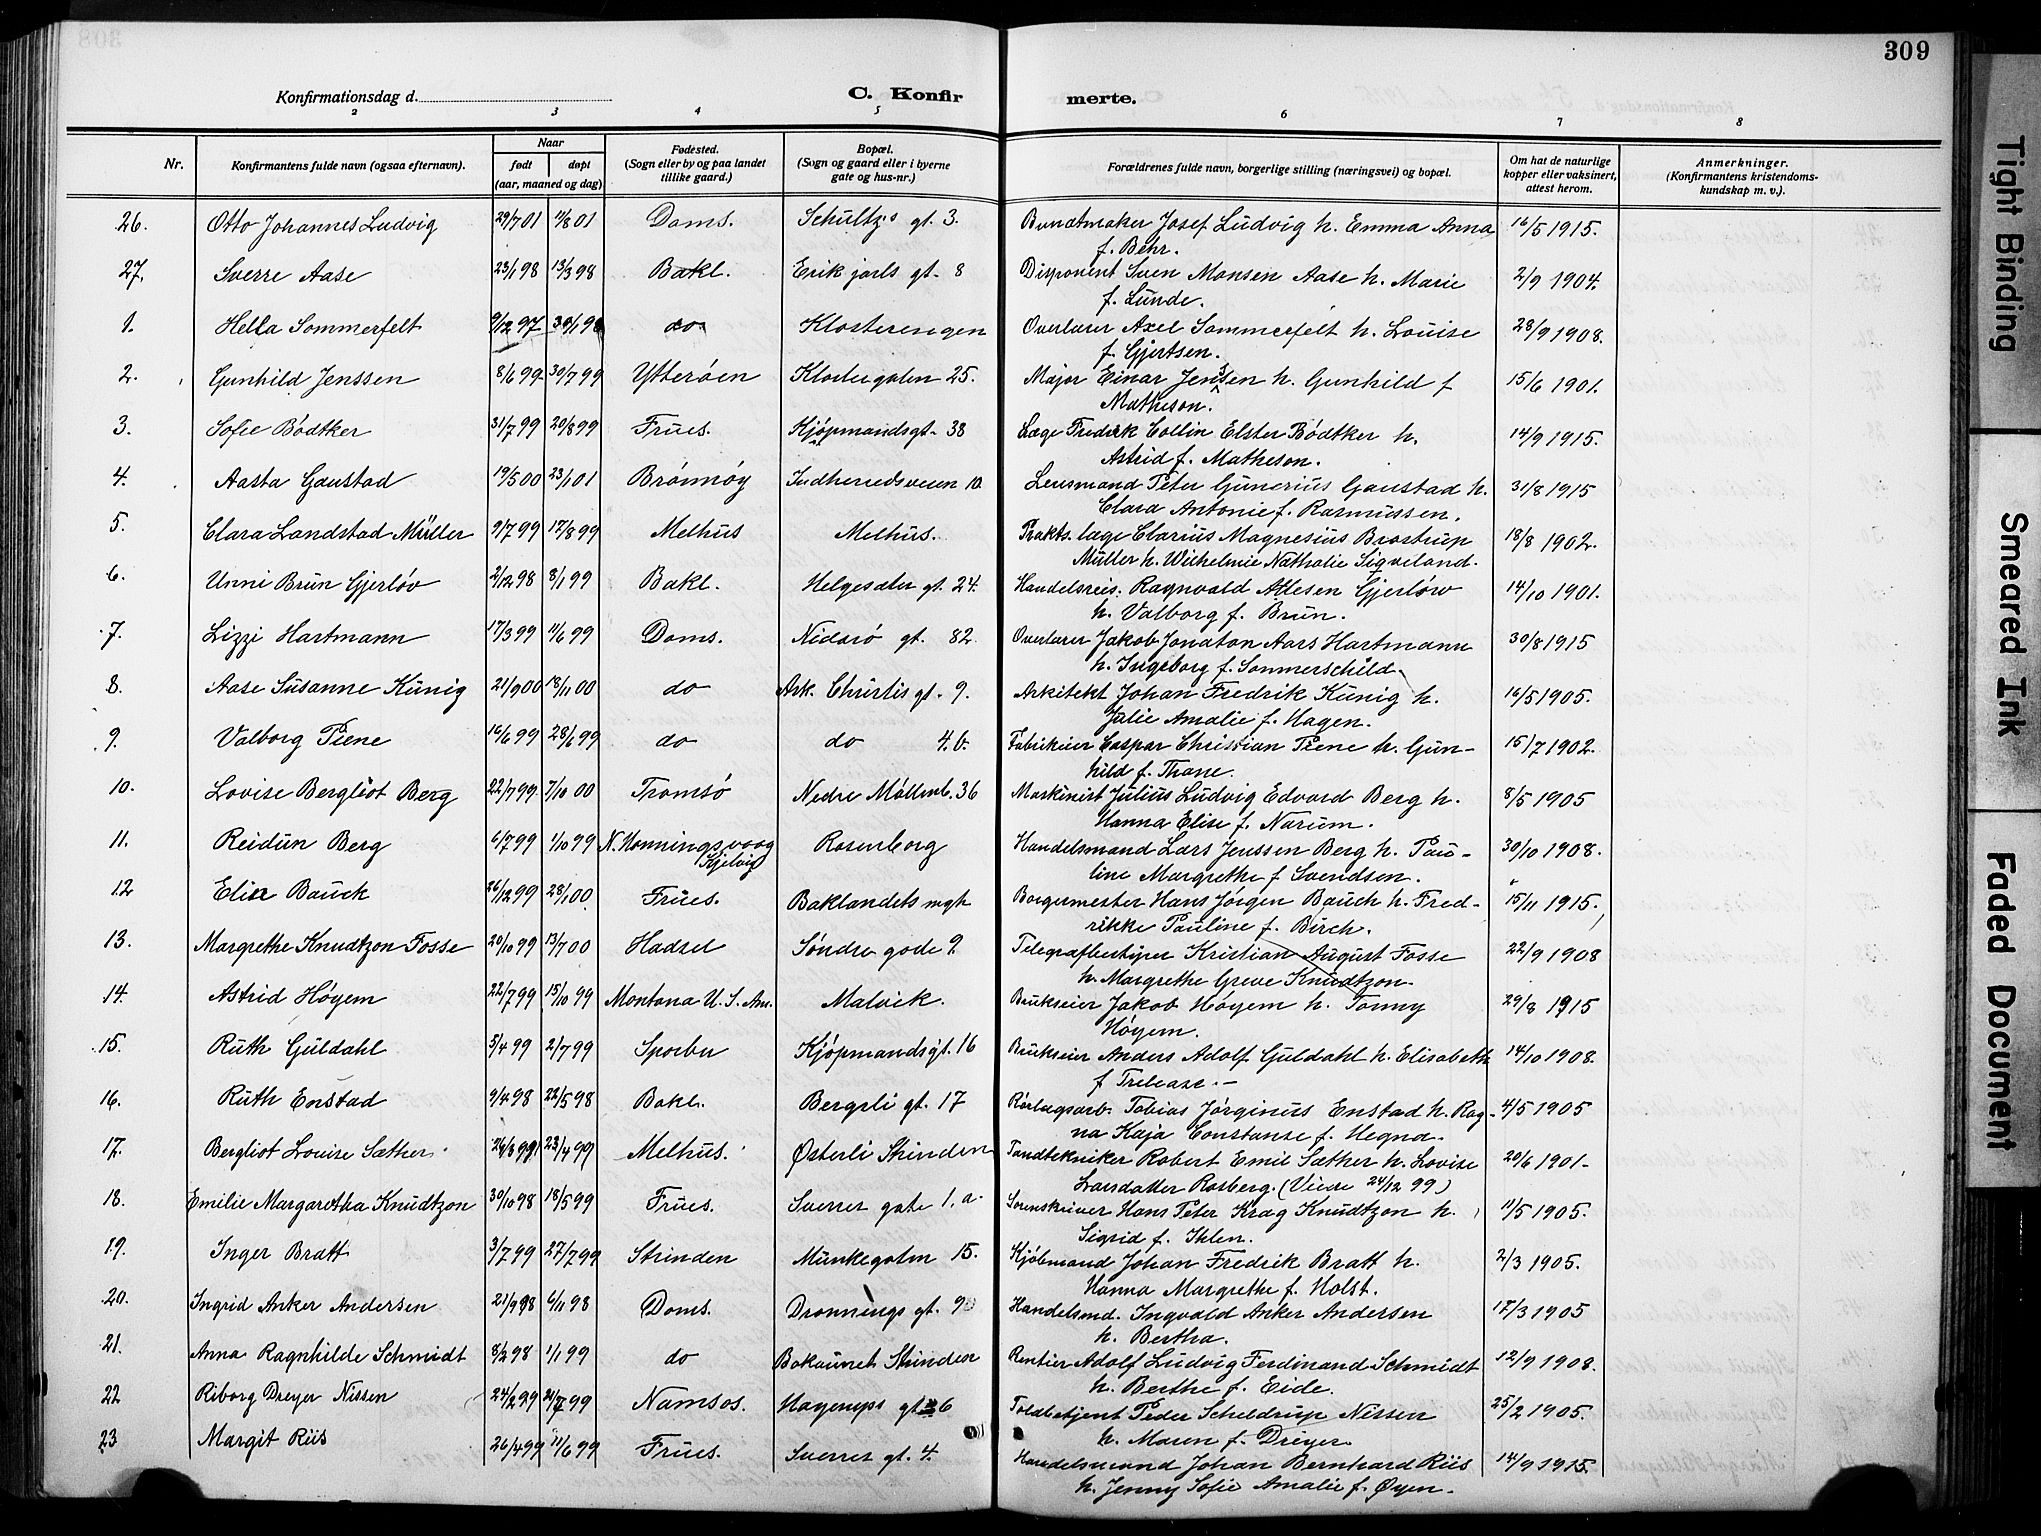 309
Konfirmationsdag d.
C. Konfir merte.
2 3 4 5 6 7 8
Nr. Konfirmantens fulde navn (ogsaa efternavn). Naar født døpt (aar, maaned og dag) Fødested. (Sogn eller by og paa landet tillike gaard.) Bopæl. (Sogn og gaard eller i byerne gate og hus-nr.) Forældrenes fulde navn, borgerlige stilling (næringsvei) og bopæl. Om hat de naturlige kopper eller vaksinert, attest herom. Anmerkninger. (Konfirmantens kristendomskundskap m. v.).
26. Otto Johannes Ludvig 29/7 01 11/8 01 Doms. Schultz's gt. 3. Bundtmaker Josef Ludvig h. Emma Anna 16/5 1915.
f. Behr.
27. Sverre Aase 23/1 98 13/3 98 Bakl. Erik jarls gt. 8 Disponent Sven Monsen Aase h. Marie 2/9 1904.
f. Lunde.
1. Hella Sommerfelt 9/12 97 30/1 98 do Klosterengen Overlærer Axel Sommerfelt h. Louise 28/9 1908.
f. Gjertsen.
2. Gunhild Jenssen 8/6 99 30/7 99 Ytterøen Klostergaten 25. Major Einar Jenssen h. Gunhild f 15/6 1901.
Matheson.
3. Sofie Bödtker 31/7 99 20/8 99 Frues. Kjøpmandsgt. 38 Læge Fredrik Collin Elster Bødtker h. 14/9 1915.
Astrid f. Matheson.
4. Aasta Gaustad 19/5 00 23/1 01 Brønnøy Indherredsveien 10. Lensmand Peter Gunerius Gaustad h. 31/8 1915
Clara Antonie f. Rasmussen.
5. Clara Landstad Müller 9/7 99 17/8 99 Melhus Melhus. Prakts. læge Clarius Magnesius Brostrup 18/8 1902.
Müller h. Wilhelmie Nathalie Sigveland.
6. Unni Brun Gjerløv 2/12 98 8/1 99 Bakl. Helgesæter gt. 24. Handelsreis. Ragnvald Attesen Gjerløw 14/10 1901.
h. Valborg f. Brun.
7. Lizzi Hartmann 17/3 99 11/6 99 Doms. Nidarø gt. 82. Overlærer Jakob Jonatan Aars Hartmann 30/8 1915
h. Ingeborg f. Sommerschild
8. Aase Susanne Kunig 21/9 00 18/11 00 do Ark. Christis gt. 9. Arkitekt Johan Fredrik Kunig h. 16/5 1905.
Julie Amalie f. Hagen.
9. Valborg Piene 16/6 99 28/6 99 do do 4.b. Fabrikeier Caspar Christian Piene h. Gun- 15/7 1902.
hild f. Thane.
10. Lovise Bergliot Berg 22/7 99 7/10 00 Tromsø Nedre Møllenb. 36 Maskinist Julius Ludvig Edvard Berg h. 8/5 1905
Hanna Elise f. Narum.
11. Reidun Berg 6/7 99 1/10 99 N. Honningsvaag Kjelvig Rosenborg Handelsmand Lars Jenssen Berg h. Pau- 30/10 1908.
line Margrethe f Svendsen.
12 Elisa Bauck 26/12 99 28/1 00 Frues. Baklandets mgh Borgermester Hans Jørgen Bauck h. Fred- 15/11 1915.
rikke Pauline f. Birch.
13. Margrethe Knudtzon Fosse 20/10 99 13/7 00 Hadsel Søndre gade 9. Telegrafbestyrer Kristian August Fosse 22/9 1908
h. Margrethe Greve Knudtzon.
14. Astrid Høyem 22/7 99 15/10 99 Montana U. S. Am. Malvik. Brukseier Jakob Høyem h. Tonny 29/8 1915
Høyem.
15. Ruth Guldahl 5/4 99 2/7 99 Sparbu Kjøpmandsgt. 16 Brukseier Anders Adolf Guldahl h. Elisabeth 14/10 1908.
f Trelease.-
16. Ruth Enstad 9/4 98 22/5 98 Bakl. Bergsli gt. 17 Rørlægsarb. Tobias Jørginus Enstad h. Rag- 4/5 1905
na Kaja Constanse f. Hegna.
17. Bergliot Louise Sæther 26/3 99 23/4 99 Melhus. Østerli Strinden Tandtekniker Robert Emil Sæther h. Lovise 20/6 1901-
Larsdatter Rosberg. (Viede 24/12 99)
18. Emilie Margaretha Knudtzon 30/10 98 18/5 99 Frues. Sverres gate 1, a. Sorenskriver Hans Peter Krag Knudtzon h. 11/5 1905.
Sigrid f. Ihlen.
19. Inger Bratt 3/7 99 27/7 99 Strinden Munkegaten 15. Kjøbmand Johan Fredrik Bratt h. 2/3 1905.
Hanna Margrethe f. Holst.
20. Ingrid Anker Andersen 21/9 98 6/11 98 Doms. Dronnings gt. 9 Handelsmd. Ingvald Anker Andersen 17/3 1905
h. Bertha.
21. Anna Ragnhilde Schmidt 8/2 98 1/1 99 do Bakaunet Strinden Rentier Adolf Ludvig Ferdinand Schmidt 12/9 1908.
h. Berthe f. Eide.
22 Riborg Dreyer Nissen 24/2 99 21/7 99 Namsos. Hagerups gt 6 Toldbetjent Peder Scheldrup Nissen 25/2 1905.
h. Maren f. Dreyer
23 Margit Riis 26/4 99 11/6 99 Frues. Sverres gt. 4. Handelsmand Johan Bernhard Riis 14/9 1915.
h. Jenny Sofie Amalie f. Øyen.
Tight Binding
Smeared Ink
Faded Document